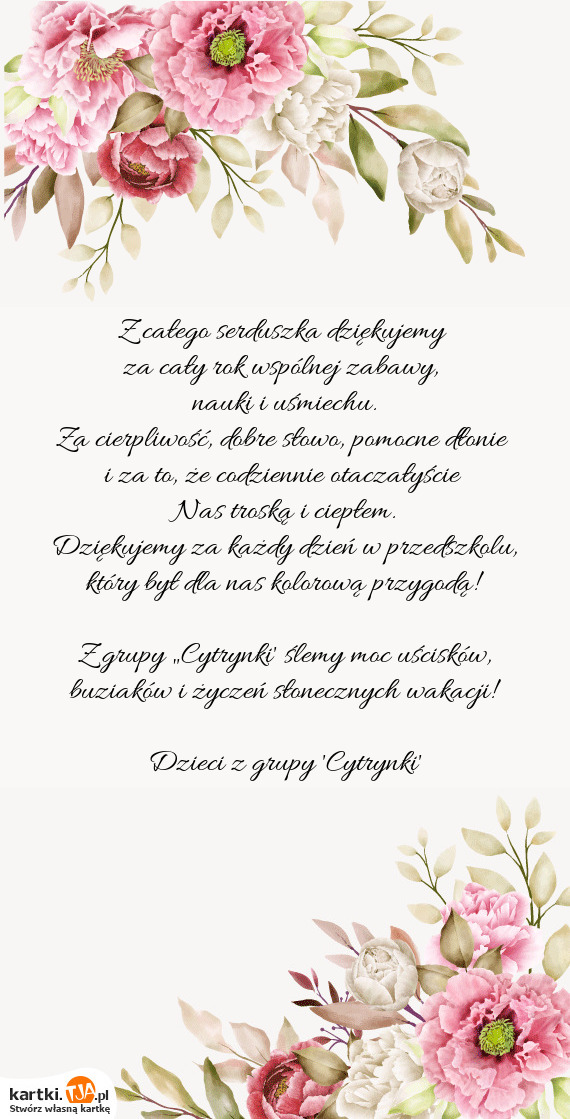 Z całego serduszka dziękujemy
za cały rok wspólnej zabawy,
nauki i uśmiechu.
Za cierpliwość, dobre słowo, pomocne dłonie
i za to, że codziennie otaczałyście
Nas troską i ciepłem.
Dziękujemy za każdy dzień w przedszkolu,
który był dla nas kolorową przygodą!
Z grupy „Cytrynki' ślemy moc uścisków,
buziaków i życzeń słonecznych wakacji!
Dzieci z grupy 'Cytrynki'
kartki.TJA.pl
Stwórz własną kartkę